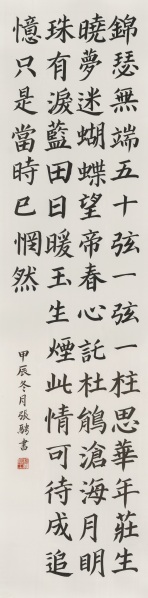 錦瑟無端五十弦一弦一柱思華年莊生
曉夢迷蝴蝶望帝春心託杜鵑滄海月明
珠有淚藍田日暖玉生煙此情可待成追
憶只是當時已惘然
甲辰冬月張騁書